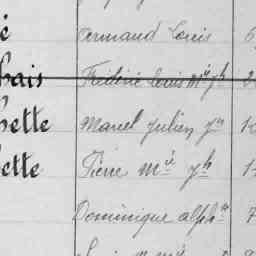 é Armand Louis 6
bais Frédéric Louis Mie Jh 2
bette Marcel Julien Jn 1
ette Pierre Mie Jh 1
Dominique Alphse 7